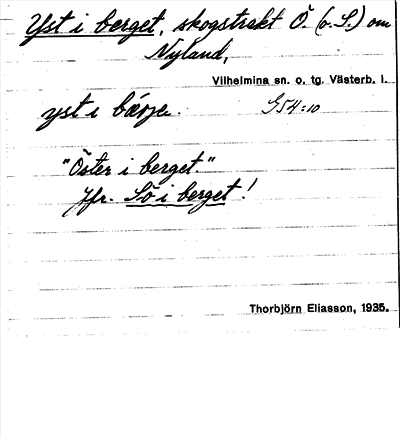 Yst i berget, skogstrakt Ö. (o. S.) om
Nyland,
Vilhelmina sn. o. tg. Västerb. l.
yst i bærje. 954:10
"Öster i berget."
Jfr. Sö i berget!
Thorbjörn Eliasson, 1935.